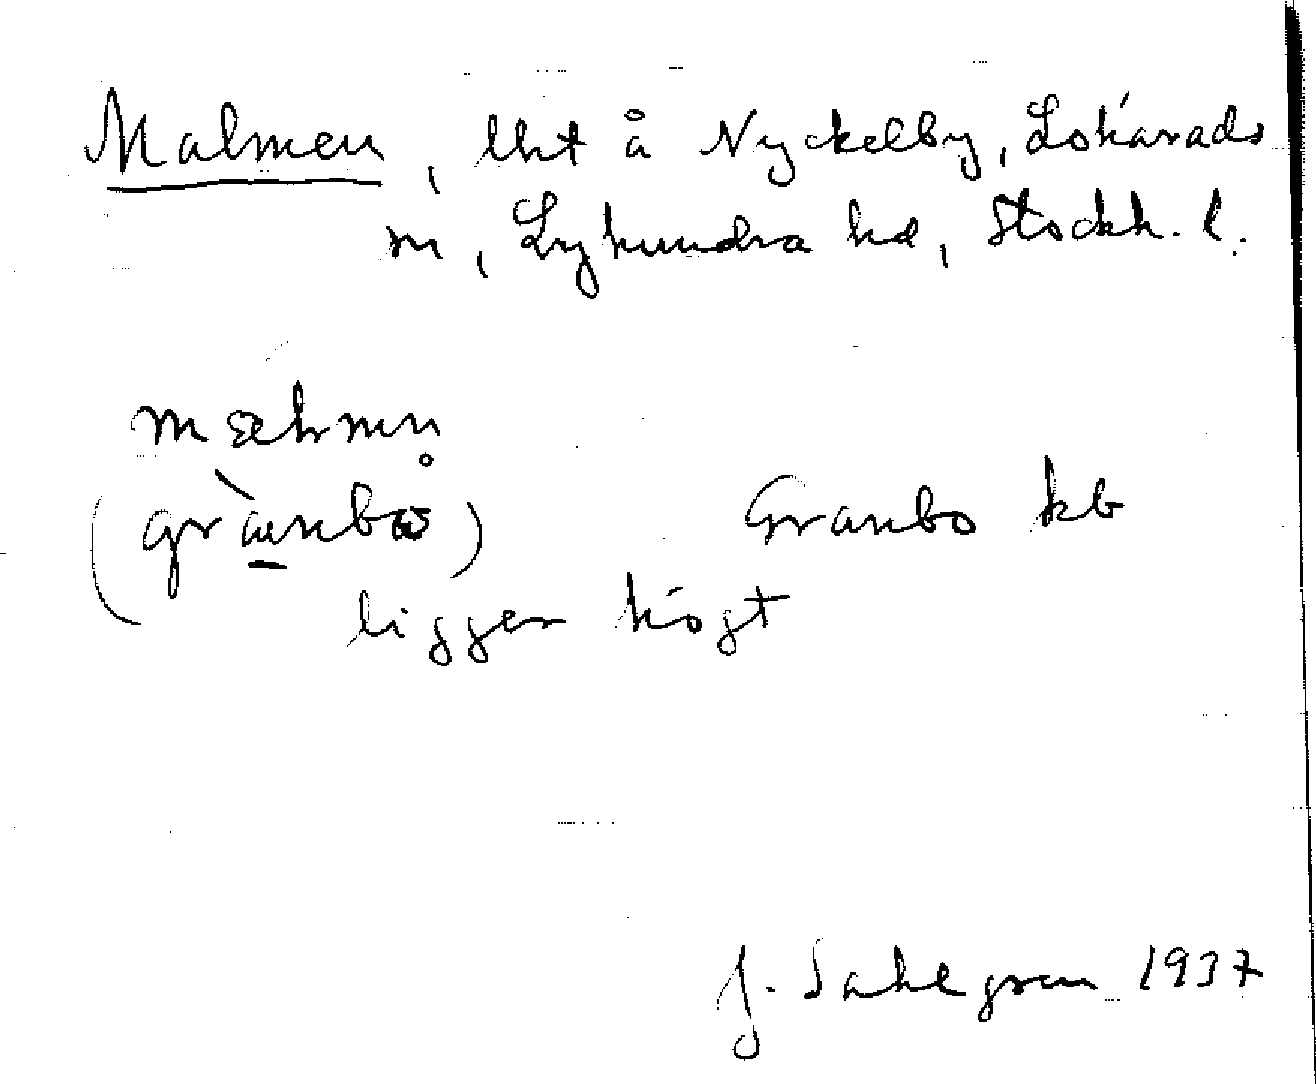 Malmen, lht å Nyckelby, Lohärads
sn, Lyhundra hd, Stockh. l.
Granbo kb
ligger högt
J. Sahlgren 1937